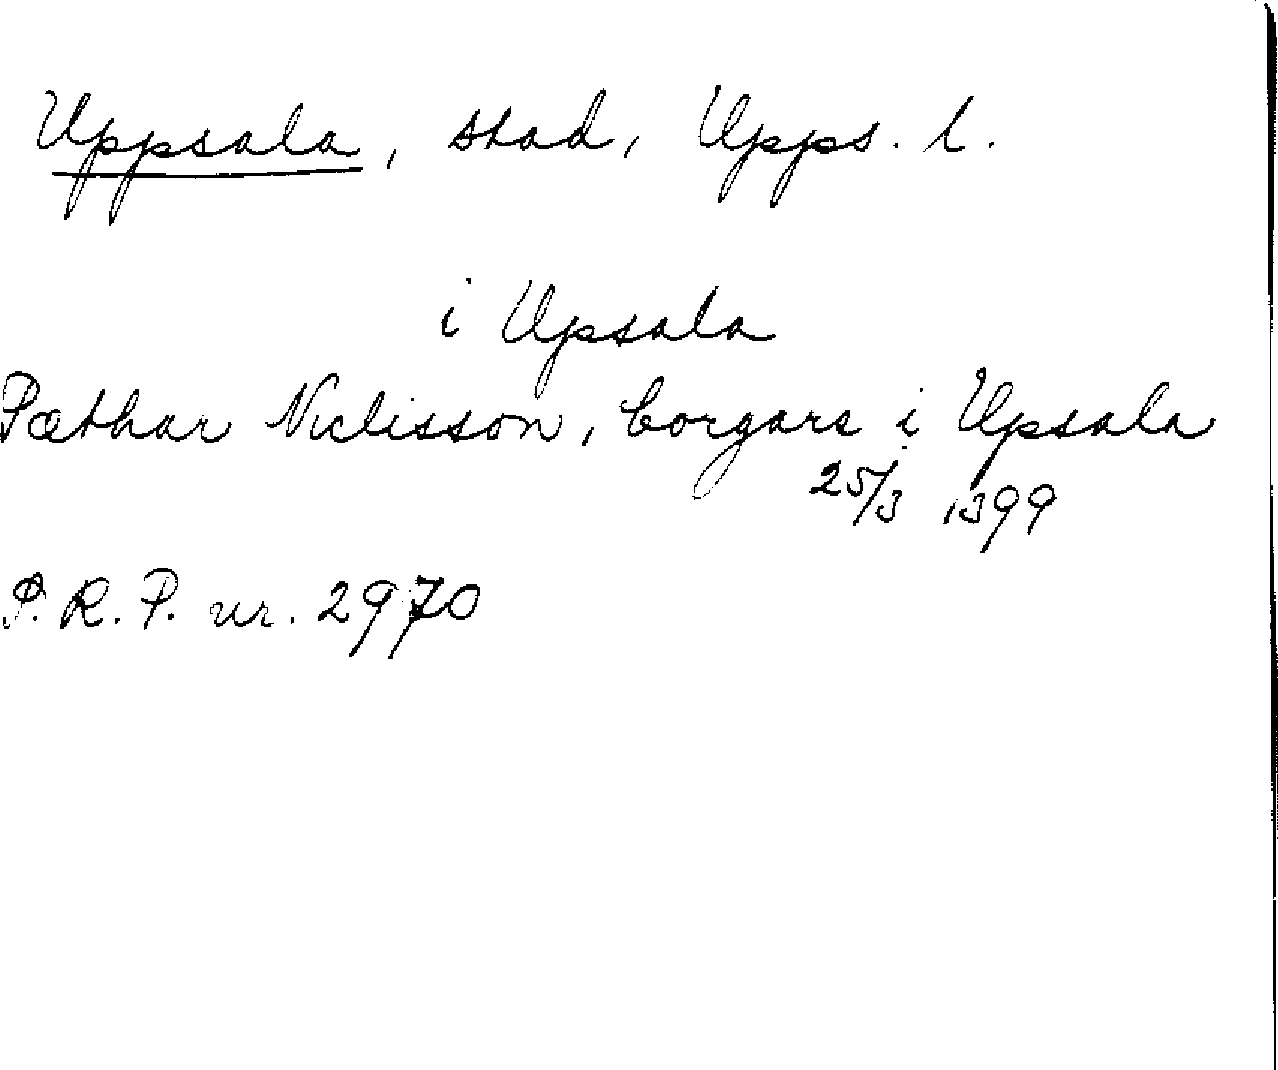 Uppsala, stad, Upps. l.
i Upsala
Pæthar Niclisson, borgare i Upsala
25/3 1399
P. R. P. nr. 2970